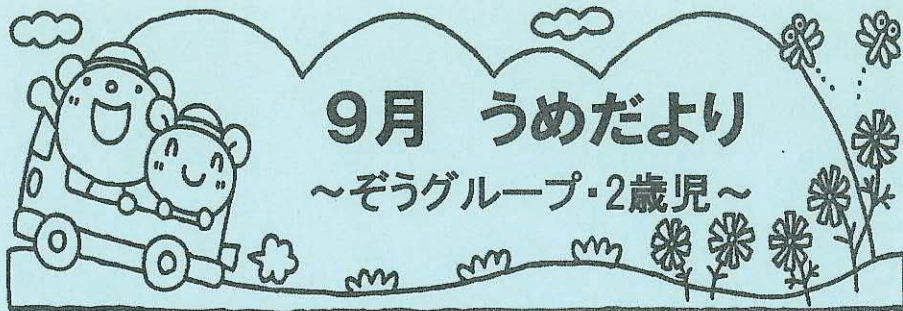 9月　うめだより
～ぞうグループ・2歳児～